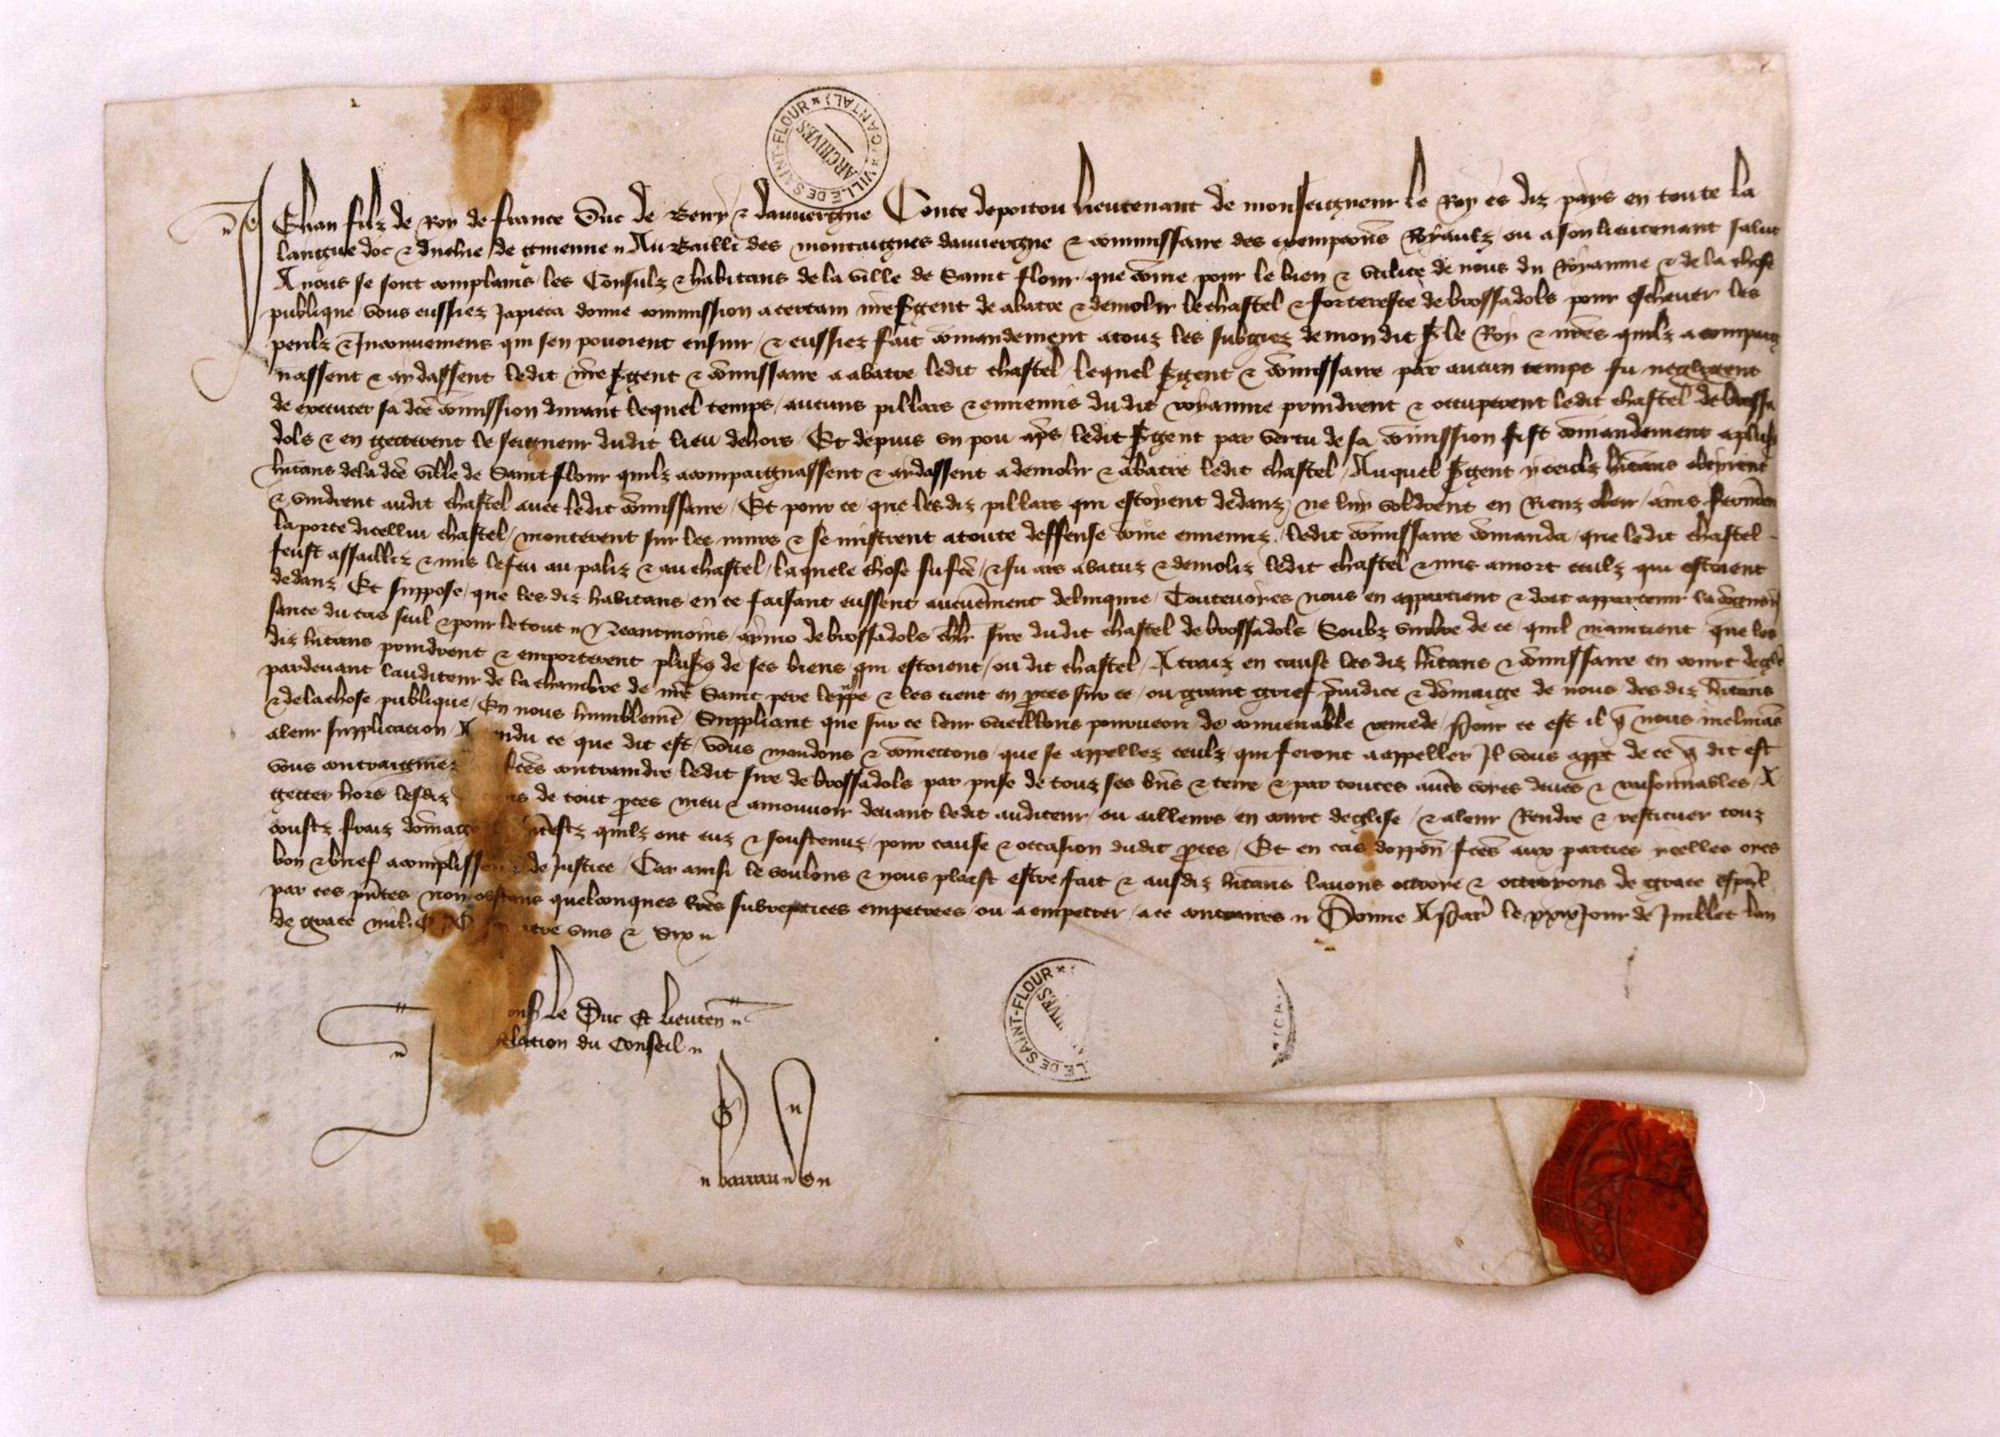 VILLE DE SAINT-FLOUR (CANTAL) ARCHIVES
Jehan filz de Roy de france Duc de Berry & dauvergne Conte de poitou lieutenant de monseigneur le Roy es diz pays en toute la
langue doc & duchie de guienne Au Bailli des montaignes dauvergne & commissaire des exempcions Royaulz ou a son lieutenant salut
A nous se sont complains les Consulz & habitans de la ville de Saint flour que come pour le bien & utilite de nous du Royaume & de la chose
publique vous eussiez Japieca donne commission a certain nre sgent de abatre & demolir le chastel & forteresse de brossadols pour eschever les
perilz & Inconveniens qui sen povoient ensuir & eussiez fait comandement a touz les subgiez de mon dit s le Roy & nres quilz acompaig
nassent & aidassent ledit nre sgent & comissaire a abatre ledit chastel lequel sgent & comissaire par aucun temps fu negligent
de executer sa dce comission durant lequel temps aucuns pillars & ennemis du dit royaume prindrent & occuperent ledit chastel de brossa
dols & en getterent le seigneur dudit lieu dehors Et depuis un pou apres ledit sgent par vertu de sa comission fist comandement a plus
hitans de la dce ville de Saint flour quilz acompaignassent & aidassent a demolir & abatre ledit chastel Auquel sgent yceulz hitans obeirent
& vindrent audit chastel avec ledit comissaire Et pour ce que lesdiz pillars qui estoyent dedanz ne luy voldrent en Rienz obeir ains fermeren
la porte dicellui chastel monterent sur les murs & se mistrent a toute deffense come ennemis ledit comissaire comanda que ledit chastel
feust assailliz & mis le feu au paliz & au chastel laquele chose fu fce & fu ars abatuz & demoliz ledit chastel & mis a mort ceulz qui estoient
dedanz Et suppose que les diz habitans en ce faisant eussent aucunement delinquie Toutevoires nous en appartient & doit appartenir la cognois
sance du cas seul & pour le tout Neantmoins aymo de brossadols chlr sire dudit chastel de brossadols Soubz umbre de ce quil maintient que les
diz hitans prindrent & emporterent plus de ses biens qui estoient ou dit chastel A traiz en cause les diz hitans & comissaire en court degle
pardevant lauditeur de la chambre de nre Saint pere le pape & les tient en proces sur ce ou grant grief preiudice & domaige de nous des diz hitans
& de la chose publique En nous humblemt Suppliant que sur ce leur vueillons pourveoir de convenable remede Pour ce est il que nous inclinans
a leur supplication ce que dit est vous mandons & comettons que se appellez ceulz qui feront a appeller Il vous appt de ce que dit est
vous contraignez contraindre ledit sire de brossadols par prise de touz ses bns & terre & par toutes autres voies deues & raisonnables A
getter hors lesdiz de tout proces meu & a mouvoir devant ledit auditeur ou ailleurs en court deglise & a leur Rendre & restituer touz
coustz fraiz quilz ont euz & soustenuz pour cause & occasion dudit proces Et en cas dopposion fces aux parties ycelles oyes
bon & brief acomplissemt de Justice Car ainsi le voulons & nous plaist estre fait & ausdiz hitans lavons ottroie & ottroyons de grace espal
par ces pntes non obstans quelconques lres subreptices empetrees ou a empetrer a ce contraires Donne A Paris le Jour de Juillet lan
de grace mil vins &
le Duc Et lieuten
Relation du conseil
SAINT-FLOUR